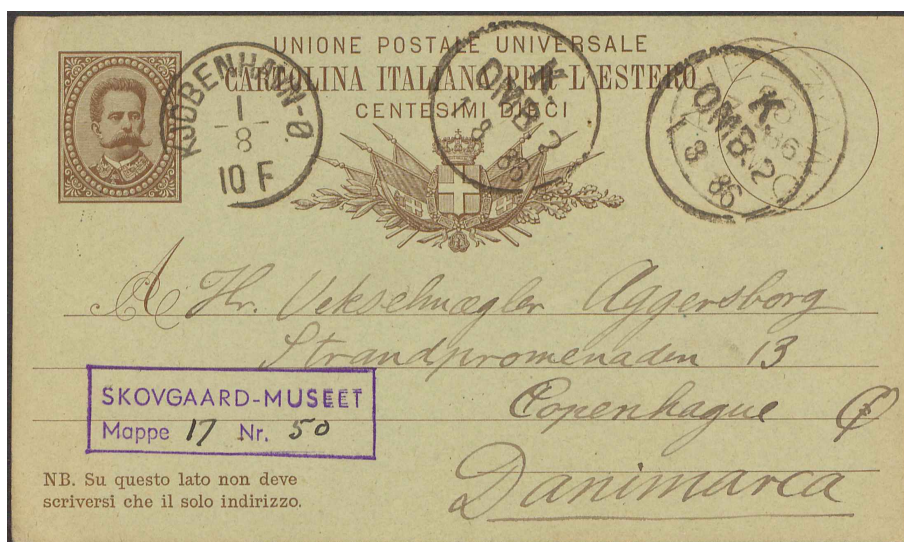 UNIONE POSTALE UNIVERSALE
CARTOLINA ITALIANA PER L'ESTERO
CENTESIMI DIECI
KJØBENHAVN-Ø.
1
8
10 F
K.
OMB. 2
1 8 86
K.
OMB. 2
1 8 86
A Hr. Vekselmægler Aggersborg
Strandpromenaden 13
Copenhague Ø
Danimarca
SKOVGAARD-MUSEET
Mappe 17 Nr. 50
NB. Su questo lato non deve
scriversi che il solo indirizzo.